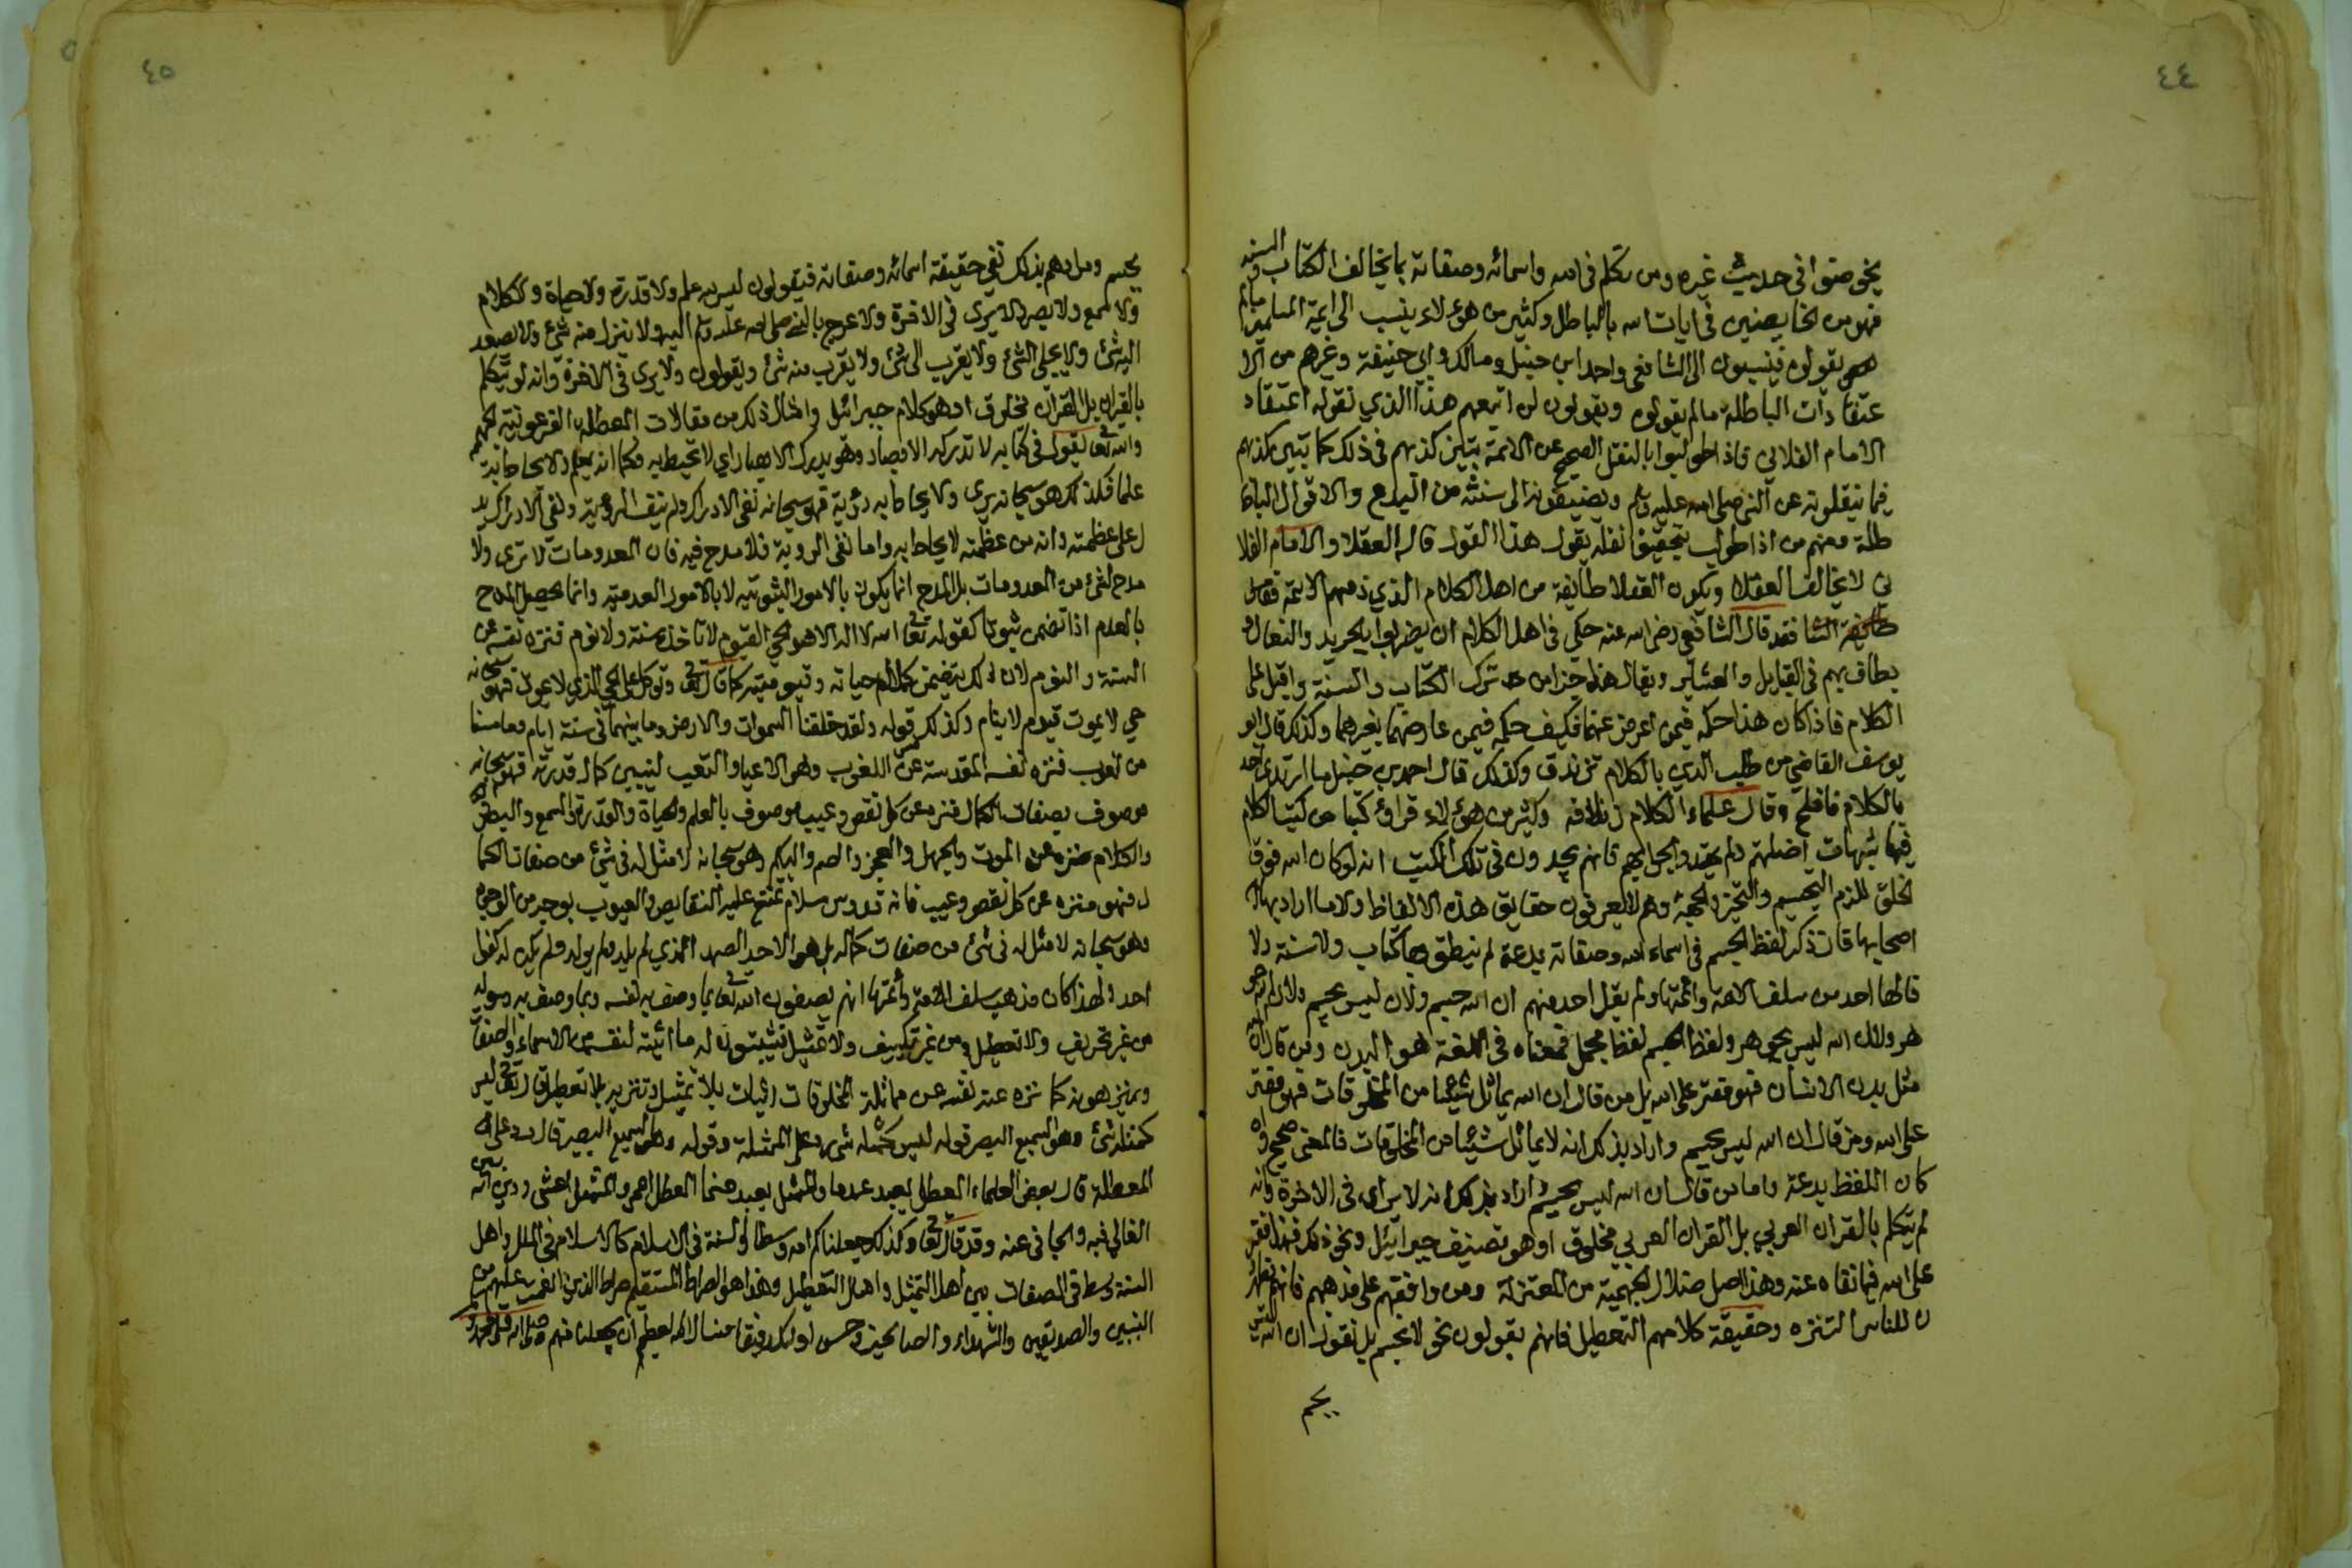 ٤٤
يخوضوا في حديث غيره ومن تكلم في الله واسمائه وصفاته بما يخالف الكتاب والسنه
فهو من الخايضين في ايات الله بالباطل وكثير من هؤلاء ينسب الى ائمة المسلمين مالم
يقولون فينسبون الى الشافعى واحمد ابن حنبل ومالك وابي حنيفة وغيرهم من الا
عتقادات الباطلة مالم يقولوه ويقولون لمن اتبعهم هذا الذي نقوله اعتقاد
الامام الفلاني فاذا طولبوا بالنقل الصحيح عن الائمة تبين كذبهم في ذلك كما تبين كذبهم
فيما ينقلونه عن النبي صلى الله عليه وسلم ويضيفونه الى سنته من البدع والاقوال البا
طلة ومنهم من اذا طولب بتحقيق نقله يقول هذا القول قاله العقلا والامام الفلا
ني لا يخالف العقلا ويكون العقلا طايفة من اهل الكلام الذي ذمهم الائمة
فقد قال الشافعي رضى الله عنه حكمي في اهل الكلام ان يضربوا بالجريد والنعال و
يطاف بهم في القبايل والعشاير ويقال هذا جزا من ترك الكتاب والسنة واقبل على
الكلام فاذا كان هذا حكمه فيمن اعرض عنهما فكيف حكمه فيمن عارضهما بغيرهما وكذلك قال ابو
يوسف القاضي من طلب الدين بالكلام تزندق وكذلك قال احمد بن حنبل ما ارتدى احد
بالكلام فافلح وقال علماء الكلام زنادقه وكثير من هؤلاء قراؤ كتبا من كتب الكلام
فيها شبهات اضلتهم ولم يهتدوا لجوابهم فانهم يجدون في تلك الكتب انه لو كان الله فوق
الخلق للزم التجسيم والتحيز والجهة وهم لا يعرفون حقايق هذه الالفاظ ولا ما اراد بها
اصحابها فان ذكر لفظ الجسم في اسماء الله وصفاته بدعة لم ينطق بها كتاب ولا سنة ولا
قالها احد من سلف الامة وائمتها ولم يقل احد منهم ان الله جسم ولا ان ليس بجسم ولا ان الله جو
هر ولا ان الله ليس بجوهر ولفظ الجسم لفظ مجمل فمعناه في اللغة هو البدن ومن قال ان الله
مثل بدن الانسان فهو مفتر على الله بل من قال ان الله يماثل شيئا من المخلوقات فهو مفتر
على الله ومن قال ان الله ليس بجسم واراد بذلك انه لا يماثل شيئا من المخلوقات فالمعنى صحيح وان
كان اللفظ بدعة واما من قال ان الله ليس بجسم واراد بذلك انه لا يرى في الاخرة وانه
لم يتكلم بالقران العربي بل القران العربي مخلوق او هو تصنيف جبرائيل ونحو ذلك فهذا مفتر
على الله فيما نفاه عنه وهذا اصل ضلال الجهمية من المعتزلة ومن وافقهم على مذهبهم فانهم يظهرو
ن للناس التنزه وحقيقة كلامهم التعطيل فانهم يقولون نحن لا نجسم بل نقول ان الله ليس
بجسم
٤٥
بجسم ومرادهم بذلك نفي حقيقة اسمائه وصفاته فيقولون ليس له علم ولا قدرة ولا حياة ولا كلام
ولا سمع ولا بصر ولا يرى في الاخرة ولا عرج بالنبي صلى الله عليه وسلم اليه ولا ينزل منه شئ ولا يصعد
اليه شئ ولا يتجلى لشئ ولا يقرب الى شئ ولا يقرب منه شئ ويقولون ولا يرى في الاخرة وانه لم يتكلم
بالقران بل القران مخلوق او هو كلام جبرائيل وامثال ذلك من مقالات المعطلة الفرعونية الجهمية
والله تعالى يقول في كتابه لا تدركه الابصار وهو يدرك الابصار اي لا تحيط به فكما انه يعلم ولا يحاط به
علما فكذلك هو سبحانه يرى ولا يحاط به رؤية فهو سبحانه نفى الادراك ولم ينف الرؤية ونفي الادراك يد
ل على عظمته وانه من عظمته لا يحاط به واما نفي الروية فلا مدح فيه فان المعدومات لا ترى ولا
مدح لشئ من المعدومات بل المدح انما يكون بالامور الثبوتيه لا بالامور العدميه وانما يحصل المدح
بالعدم اذا تضمن ثبوتا كقوله تعا الله لا اله الا هو الحي القيوم لا تاخذه سنة ولا نوم فنزه نفسه عن
السنة والنوم لان ذلك يتضمن كمال حياته وقيوميته كما قال تعالى وتوكل على الحي الذي لا يموت فهو سبحانه
حي لا يموت قيوم لا ينام وكذلك قوله ولقد خلقنا السموات والارض وما بينهما في ستة ايام وما مسنا
من لغوب فنزه نفسه المقدسة عن اللغوب وهو الاعيا والتعب ليتبين كمال قدرته فهو سبحانه
موصوف بصفات الكمال منزه عن كل نقص وعيب موصوف بالعلم والحياة والقدرة والسمع والبصر
والكلام منزه عن الموت والجهل والعجز والصم والبكم وهو سبحانه لا مثل له في شئ من صفات الكما
ل فهو منزه عن كل نقص وعيب فانه قدوس سلام تمتنع عليه النقايص والعيوب بوجه من الوجوه
وهو سبحانه لا مثل له في شئ من صفات كماله بل هو الاحد الصمد الذي لم يلد ولم يولد ولم يكن له كفوا
احد ولهذا كان مذهب سلف الامة وائمتها انهم يصفون الله تعا بما وصف به نفسه وبما وصف به رسوله
من غير تحريف ولا تعطيل ومن غير تكييف ولا تمثيل فيثبتون له ما اثبته لنفسه من الاسماء والصفات
وينزهونه كما نزه عنه نفسه من مماثلة المخلوقات اثبات بلا تمثيل وتنزيه بلا تعطيل قال تعالى ليس
كمثله شئ وهو السميع البصير قوله ليس كمثله شئ رد على المثلة وقوله وهو السميع البصير قال رد على
المعطلة قال بعض العلماء المعطل يعبد عدما والممثل يعبد صنما المعطل اعمى والممثل اعشى ودين الله بين
الغالي فيه والجافي عنه وقد قال تعا وكذلك جعلناكم امة وسطا والسنة في الاسلام كالاسلام في الملل واهل
السنة وسط في الصفات بين اهل التمثيل واهل التعطيل وهذا هو الصراط المستقيم صراط الذين انعمت عليهم من
النبيين والصديقين والشهداء والصالحين وحسن اولئك رفيقا فنسال الله العظيم ان يجعلنا منهم